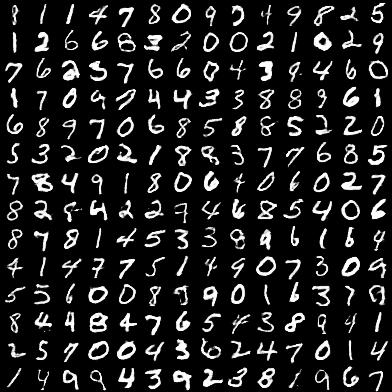 8 1 1 4 7 8 0 9 3 4 9 8 2 5
1 2 6 6 8 3 2 0 0 2 1 0 2 9
7 6 2 5 7 6 6 0 4 3 9 4 6 0
1 7 0 9 7 4 4 3 3 8 8 9 6 1
6 8 9 7 0 6 8 5 8 8 5 2 2 0
5 3 2 0 2 1 8 8 3 7 7 6 8 5
7 8 4 9 1 8 0 6 4 0 6 0 2 7
8 2 8 4 2 2 7 4 6 8 5 4 0 6
8 7 8 1 4 5 3 3 8 9 6 1 6 4
4 1 4 7 7 5 1 4 9 0 7 3 0 9
5 5 6 0 0 8 9 9 0 1 6 3 7 8
8 4 4 8 4 7 6 5 4 3 8 9 4 1
2 5 7 0 0 4 3 6 2 4 7 0 1 4
1 4 9 9 4 3 9 2 3 8 1 9 6 7